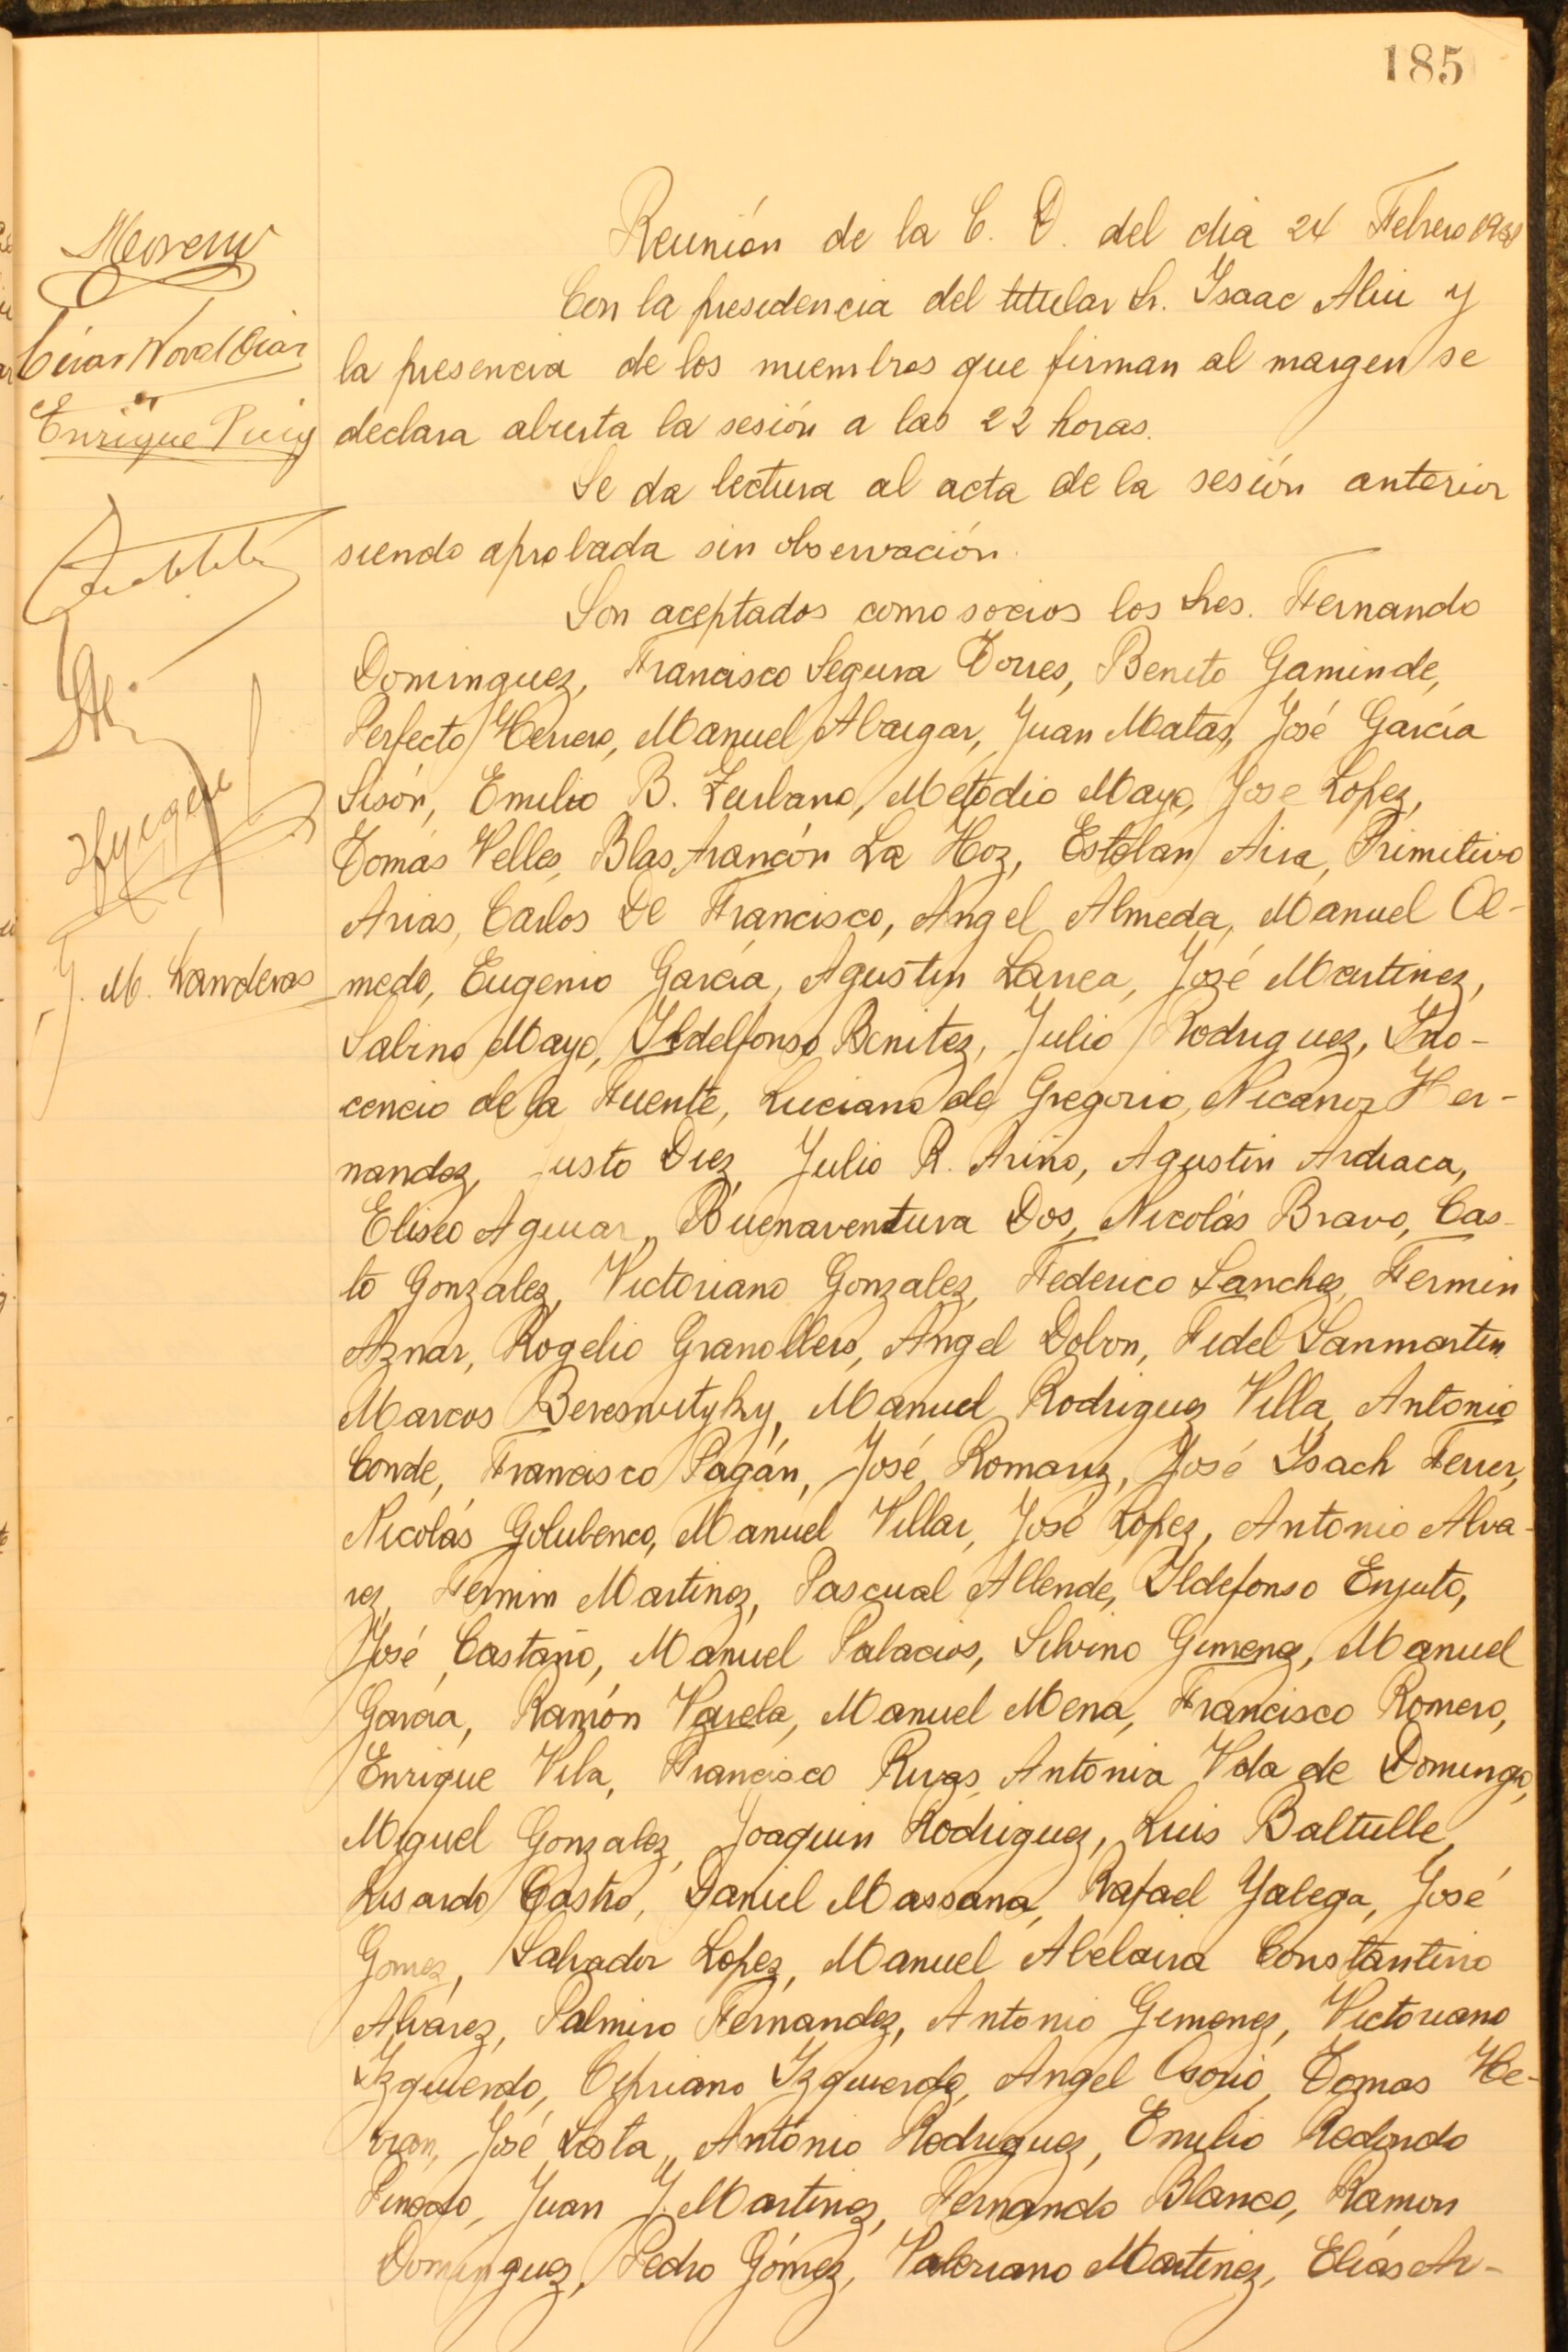 185
Reunión de la C. D. del dia 24 Febrero
Con la presidencia del titular Sr. Isaac Aliu y
la presencia de los miembros que firman al margen se
declara abierta la sesión a las 22 horas.
Se da lectura al acta de la sesión anterior
siendo aprobada sin observación.
Son aceptados como socios los Sres. Fernando
Dominguez, Francisco Segura Torres, Benito Gaminde,
Perfecto Herrero, Manuel Abaigar, Juan Matas, José García
Sisón, Emilio B. Zurbano, Metodio Mayo, Jose Lopez,
Tomás Velles, Blas Arancón La Hoz, Esteban Aira, Primitivo
Arias, Carlos De Francisco, Angel Almeda, Manuel Ol-
medo, Eugenio García, Agustin Larrea, José Martinez,
Sabino Mayo, Ildelfonso Benitez, Julio Rodriguez, Ino-
cencio de la Fuente, Luciano de Gregorio, Nicanor Her-
nandez, Justo Diez, Julio R. Ariño, Agustin Ardiaca,
Eliseo Aguiar, Buenaventura Dos, Nicolás Bravo, Cas-
to Gonzalez, Victoriano Gonzalez, Federico Sanchez, Fermin
Aznar, Rogelio Granollers, Angel Dolon, Fidel Sanmartin
Marcos Manuel Rodriguez Villa, Antonio
Conde, Francisco Pagán, José Romariz, José Isach Ferrer,
Nicolás Golubenco, Manuel Villar, José Lopez, Antonio Alva-
rez, Fermin Martinez, Pascual Allende, Ildefonso Enjuto,
José Castaño, Manuel Palacios, Silvino Gimenez, Manuel
García, Ramón Varela, Manuel Mena, Francisco Romero,
Enrique Vila, Francisco Rivas, Antonia Vda de Domingo,
Miguel Gonzalez, Joaquin Rodriguez, Luis Baltulle,
Lisardo Castro, Daniel Massana, Rafael Yalega, José
Gomez, Salvador Lopez, Manuel Abelaira Constantino
Alvarez, Palmiro Fernandez, Antonio Gimenez, Victoriano
Izquierdo, Cipriano Izquierdo, Angel Osorio, Tomas He-
rran, José Losta, Antonio Rodriguez, Emilio Redondo
Pinedo, Juan J. Martinez, Fernando Blanco, Ramon
Dominguez, Pedro Gómez, Valeriano Martinez, Elías Ar-
Moreno
César Noval Diaz
Enrique Puig
J. M. Landeras